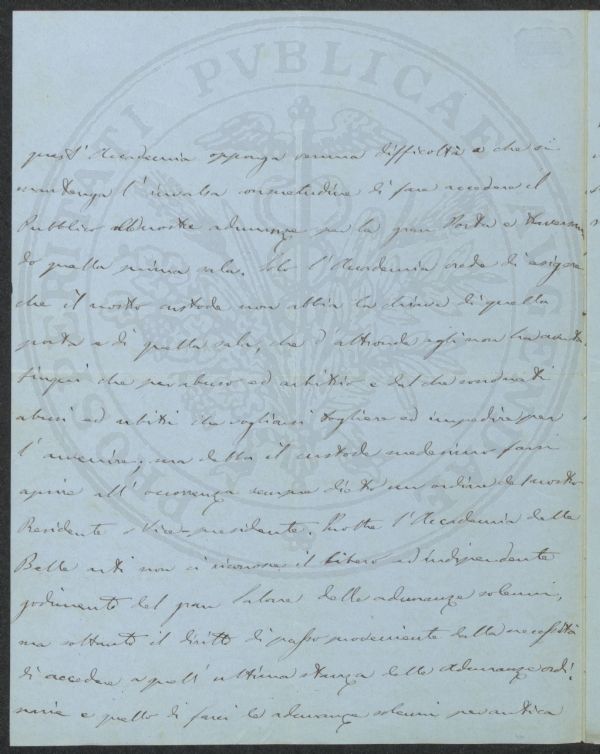 quest' Accademia opponga veruna difficoltà a che si
mantenga l' invalsa consuetudine di fare accedere il
Pubblico alle nostre adunanze per la gran Porta e traversan
do quella prima sala. Solo l' Accademia crede di esigere
che il nostro custode non abbia la chiave di quella
porta e di quella sala, che d' altronde egli non ha avuta
finqui che per abuso ed arbitrio e del che
abusi ed arbitri che vogliansi togliere ed impedire per
l' avvenire; ma debba il custode medesimo farsi
aprire all' occorrenza sempre dietro un ordine del nostro
Presidente o Vice-presidente. Inoltre l' Accademia delle
Belle arti non ci riconosce il libero ed indipendente
godimento del gran Salone delle adunanze solenni,
ma soltanto il diritto di passo proveniente dalla necessità
di accedere a quell' ultima stanza delle adunanze ordi-
narie e quello di farci le adunanze solenni per antica
PROSPERITATI PVBLICAE AVGENDAE